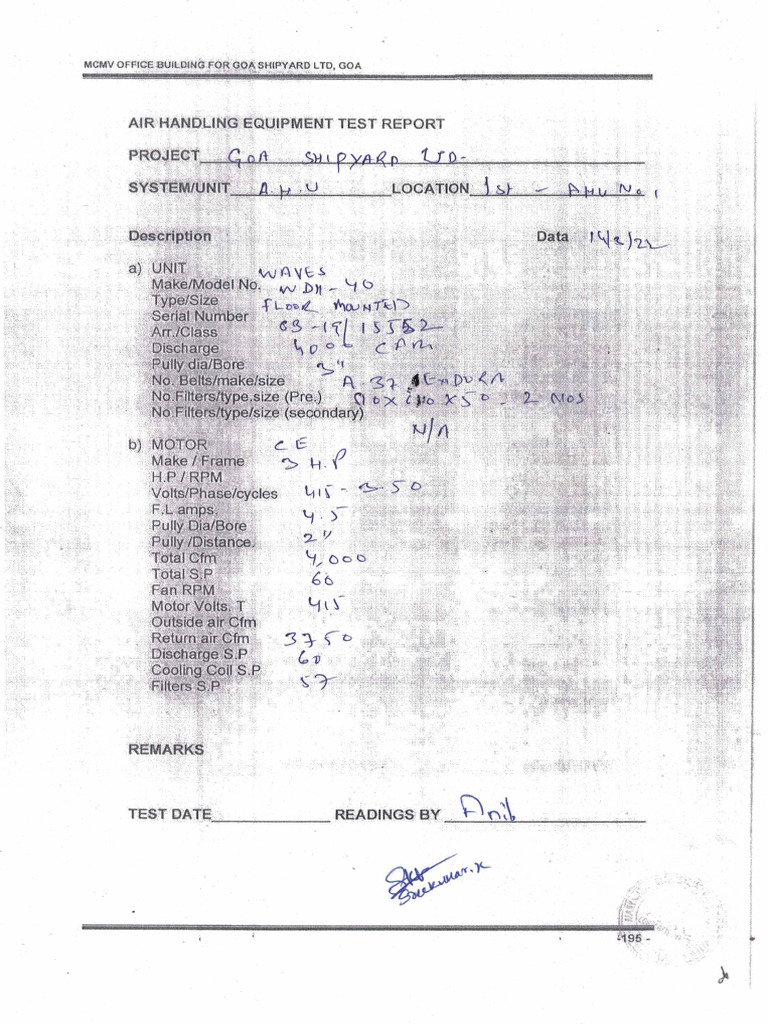 MCMV OFFICE BUILDING FOR GOA SHIPYARD LTD, GOA
AIR HANDLING EQUIPMENT TEST REPORT
PROJECT GOA SHIPYARD LTD-
SYSTEM/UNIT A.H.U LOCATION 1st - AHU No 1
Description Data 14/2/22
a) UNIT WAVES
Make/Model No. WDH-40
Type/Size FLOOR MOUNTED
Serial Number
Arr./Class 03-19/15552
Discharge 4000
Pully dia/Bore 3"
No. Belts/make/size A.37 ENDURA
No.Filters/type.size (Pre.) x50 - 2 NOS
No Filters/type/size (secondary) N/A
b) MOTOR CE
Make / Frame 3 H.P
H.P / RPM
Volts/Phase/cycles 415-3-50
F.L amps. 4.5
Pully Dia/Bore
Pully /Distance. 2"
Total Cfm 4,000
Total S.P 60
Fan RPM
Motor Volts. T 415
Outside air Cfm
Return air Cfm 3750
Discharge S.P 60
Cooling Coil S.P
Filters S.P 57
REMARKS
TEST DATE READINGS BY Anib
Sreekumar.K
-195 -